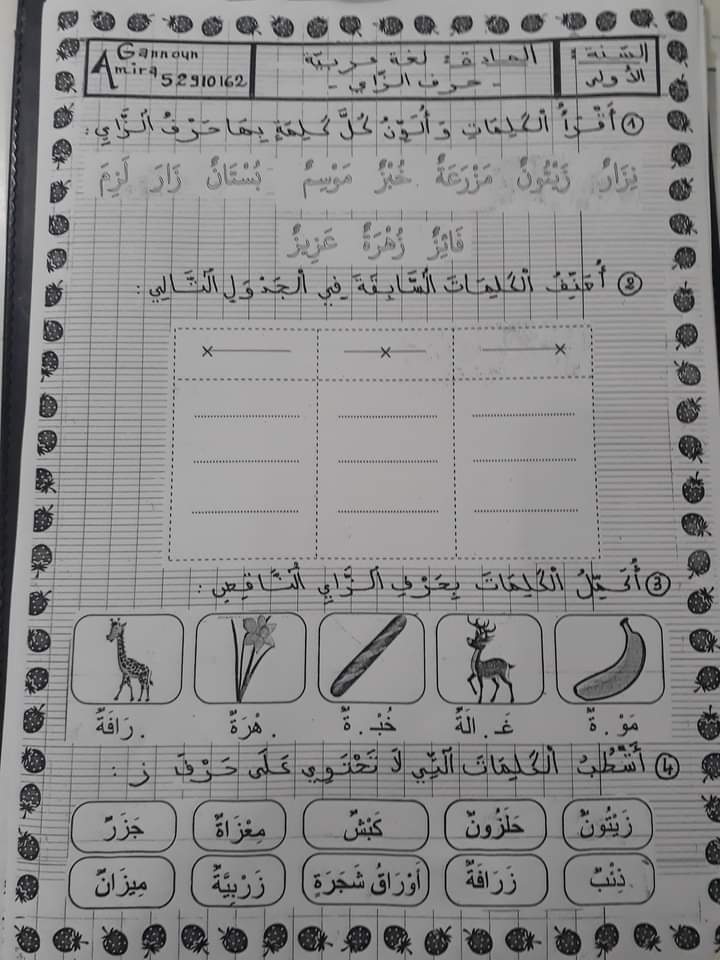 السّنة: الأولى
المادة: لغة عربيّة
- حرف الزّاي -
Gannoun
Amira 52910162
① أَقْرَأُ الْكَلِمَاتِ وَ أُلَوِّنُ كُلَّ كَلِمَةٍ بِهَا حَرْفُ الزَّايِ:
نِزَارٌ زَيْتُونٌ مَزْرَعَةٌ خُبْزٌ مَوْسِمٌ بُسْتَانٌ زَارَ لَزِمَ
فَائِزٌ زُهْرَةٌ عَزِيزٌ
② أُصَنِّفُ الْكَلِمَاتَ السَّابِقَةَ فِي الْجَدْوَلِ التَّالِي:
③ أُكَمِّلُ الْكَلِمَاتَ بِحَرْفِ الزَّايِ النَّاقِصِ:
مَوْ . ةٌ غَـ . الَةٌ خُبْـ . ةٌ . هْرَةٌ . رَافَةٌ
④ أَشْطُبُ الْكَلِمَاتَ الَّتِي لَا تَحْتَوِي عَلَى حَرْفَ ز:
زَيْتُونٌ حَلَزُونٌ كَبْشٌ مِعْزَاةٌ جَزَرٌ
ذِئْبٌ زَرَافَةٌ أَوْرَاقُ شَجَرَةٍ زَرْبِيَّةٌ مِيزَانٌ